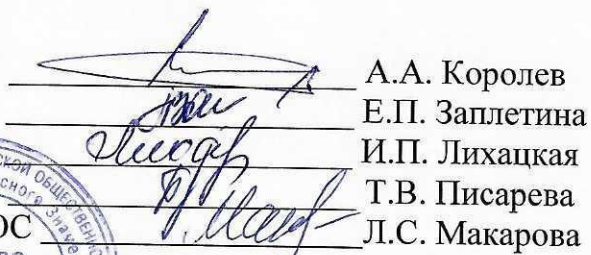 А.А. Королев
Е.П. Заплетина
И.П. Лихацкая
Т.В. Писарева
ОС Л.С. Макарова